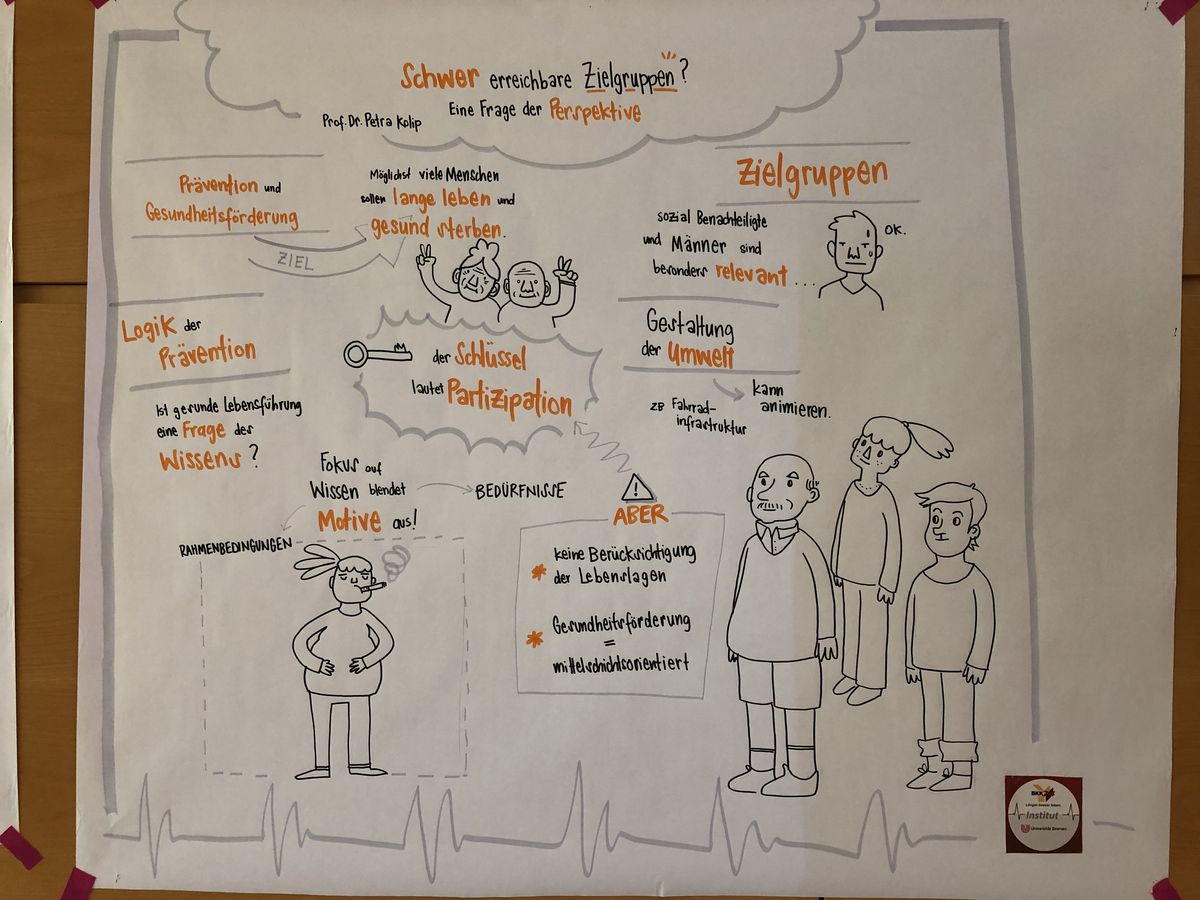 Schwer erreichbare Zielgruppen?
Eine Frage der Perspektive
Prof. Dr. Petra Kolip
Prävention und
Gesundheitsförderung
ZIEL
Möglichst viele Menschen
sollen lange leben und
gesund sterben.
Zielgruppen
sozial Benachteiligte
und Männer sind
besonders relevant ...
OK.
Logik der
Prävention
Ist gesunde Lebensführung
eine Frage des
Wissens?
der Schlüssel
lautet Partizipation
Gestaltung
der Umwelt
kann
animieren.
ZB Fahrrad-
infrastruktur
Fokus auf
Wissen blendet
Motive aus!
BEDÜRFNISSE
RAHMENBEDINGUNGEN
ABER
keine Berücksichtigung
der Lebenslagen
Gesundheitsförderung
=
mittelschichtsorientiert
BKK
Länger besser leben.
Institut
Universität Bremen